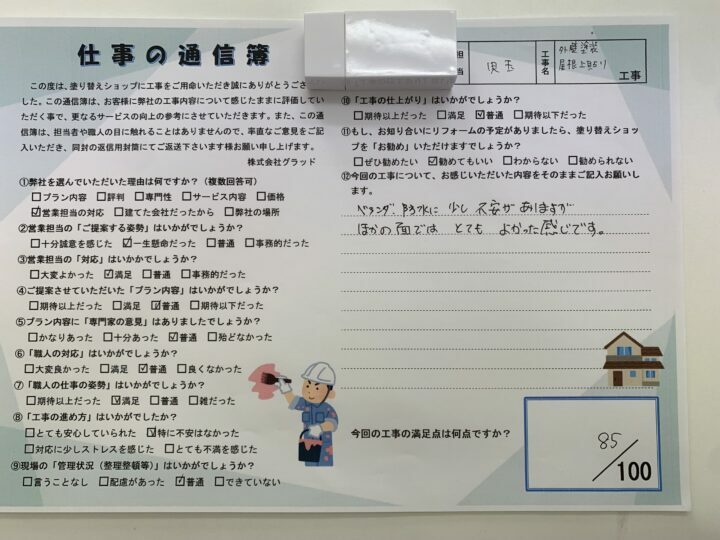 仕事の通信簿
この度は、塗り替えショップに工事をご用命いただき誠にありがとうござ
した。この通信簿は、お客様に弊社の工事内容について感じたままに評価してい
ただく事で、更なるサービスの向上の参考にさせていただきます。また、この通
信簿は、担当者や職人の目に触れることはありませんので、率直なご意見をご記
入いただき、同封の返信用封筒にてご返送下さいます様お願い申し上げます。
株式会社グラッド
①弊社を選んでいただいた理由は何ですか?(複数回答可)
□プラン内容 □評判 □専門性 □サービス内容 □価格
☑営業担当の対応 □建てた会社だったから □弊社の場所
②営業担当の「ご提案する姿勢」はいかがでしょうか?
□十分誠意を感じた ☑一生懸命だった □普通 □事務的だった
③営業担当の「対応」はいかかでしょうか?
□大変よかった ☑満足 □普通 □事務的だった
④ご提案させていただいた「プラン内容」はいかがでしょうか?
□期待以上だった □満足 ☑普通 □期待以下だった
⑤プラン内容に「専門家の意見」はありましたでしょうか?
□かなりあった □十分あった ☑普通 □殆どなかった
⑥「職人の対応」はいかがでしょうか?
□大変良かった □満足 ☑普通 □良くなかった
⑦「職人の仕事の姿勢」はいかがでしょうか?
□期待以上だった ☑満足 □普通 □雑だった
⑧「工事の進め方」はいかがでしたか?
□とても安心していられた ☑特に不安はなかった
□対応に少しストレスを感じた □とても不満を感じた
⑨現場の「管理状況(整理整頓等)」はいかがでしょうか?
□言うことなし □配慮があった ☑普通 □できていない
担当
児玉
工事名
外壁塗装
屋根上貼り
工事
⑩「工事の仕上がり」はいかがでしょうか?
□期待以上だった □満足 ☑普通 □期待以下だった
⑪もし、お知り合いにリフォームの予定がありましたら、塗り替えショッ
プを「お勧め」いただけますでしょうか?
□ぜひ勧めたい ☑勧めてもいい □わからない □勧められない
⑫今回の工事について、お感じいただいた内容をそのままご記入お願いし
ます。
ベランダ防水に少し不安がありますが
ほかの面では とても よかった感じです。
今回の工事の満足点は何点ですか?
85
/100